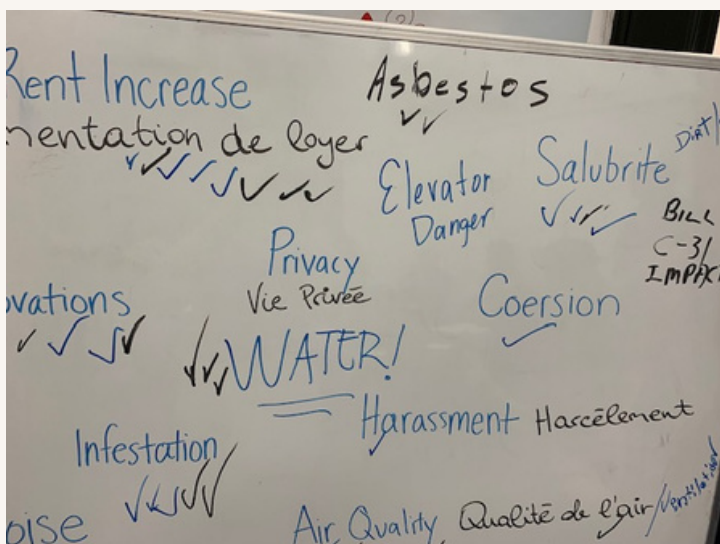 Rent Increase
mentation de loyer
Asbestos
Elevator
Danger
Salubrite
Dirt/
Bill
C-31
IMPACT
Privacy
Vie Privée
ovations
WATER!
Coersion
Harassment Harcēlement
Infestation
oise
Air Quality Qualité de l'air/Ventilation